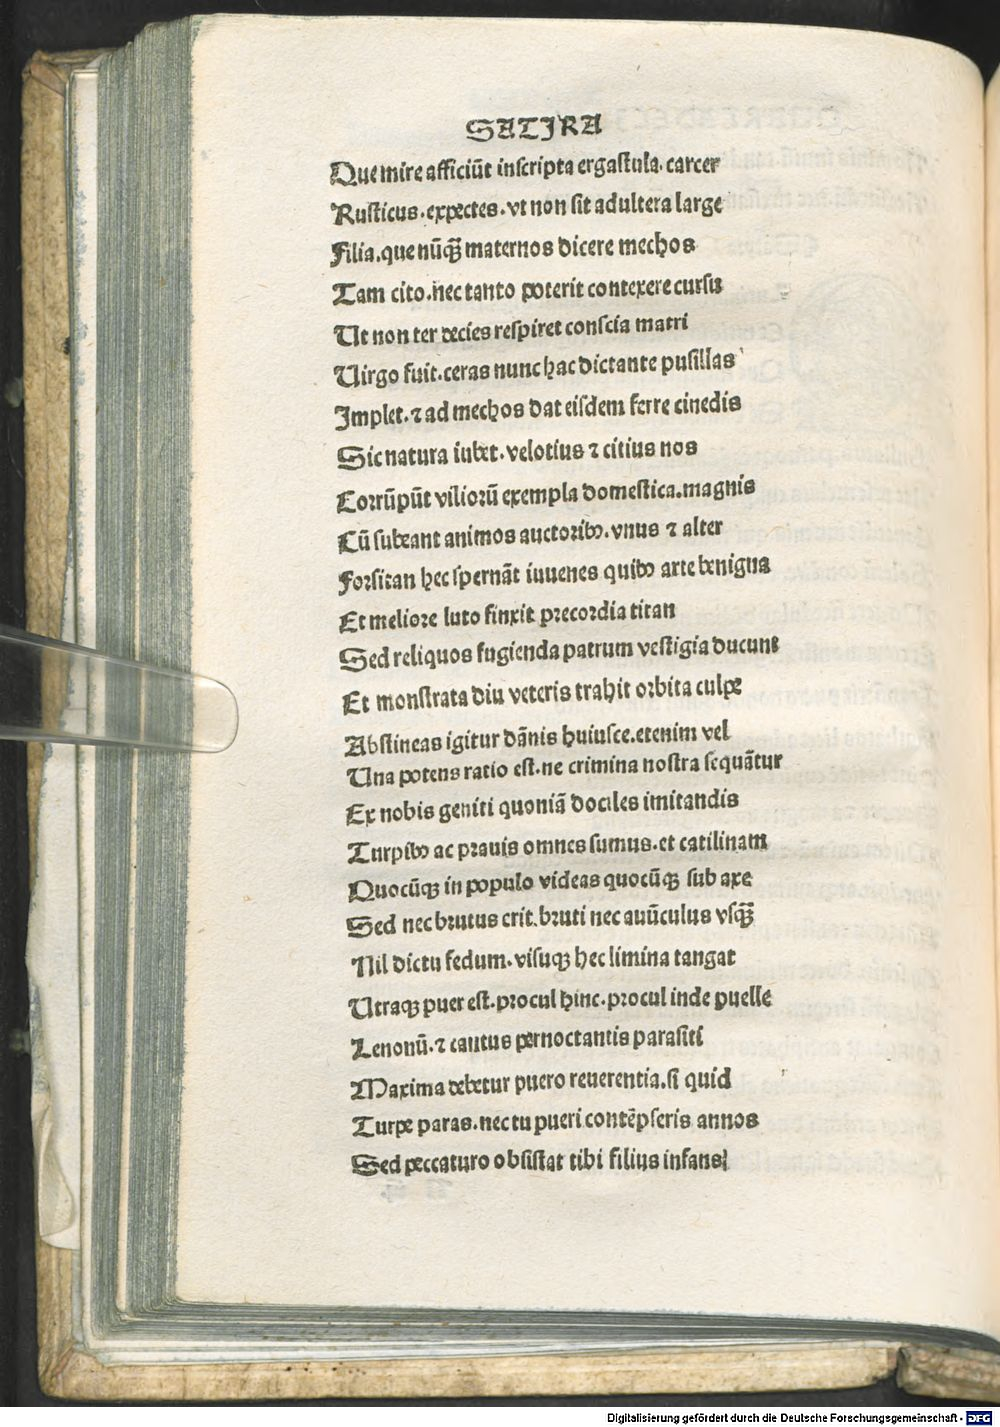 SATIRA
Que mire afficiūt inscripta ergastula. carcer
Rusticus. expectes. vt non sit adultera large
Filia. que nūqꝫ maternos dicere mechos
Tam cito. nec tanto poterit contexere cursu
Ut non ter decies respiret conscia matri
Uirgo fuit. ceras nunc hac dictante pusillas
Implet. ⁊ ad mechos dat eisdem ferre cinedis
Sic natura iubet. velotius ⁊ citius nos
Corrūpūt viliorū exempla domestica. magnis
Cū subeant animos auctoribꝰ. vnus ⁊ alter
Forsitan hec spernāt iuuenes quibꝰ arte benigna
Et meliore luto finxit precordia titan
Sed reliquos fugienda patrum vestigia ducunt
Et monstrata diu veteris trahit orbita culpe
Abstineas igitur dānis huiusce. etenim vel
Una potens ratio est. ne crimina nostra sequātur
Ex nobis geniti quoniā dociles imitandis
Turpibꝰ ac prauis omnes sumus. et catilinam
Quocūqꝫ in populo videas quocūqꝫ sub axe
Sed nec brutus erit. bruti nec auūculus vsqꝫ
Nil dictu fedum. visuqꝫ hec limina tangat
Utraqꝫ puer est. procul hinc. procul inde puelle
Lenonū. ⁊ cautus pernoctantis parasiti
Maxima debetur puero reuerentia. si quid
Turpe paras. nec tu pueri contēpseris annos
Sed peccaturo obsistat tibi filius infans
Digitalisierung gefördert durch die Deutsche Forschungsgemeinschaft - DFG